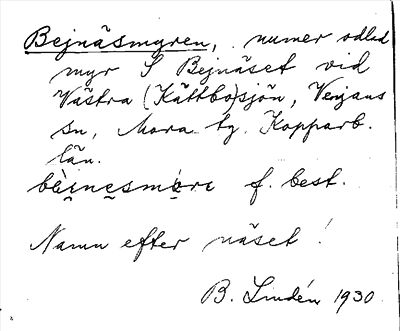 Bejnäsmyren, numer odlad
myr S Bejnäset vid
Västra (Kättbo)sjön, Venjans
sn, Mora tg. Kopparb.
län.
f. best.
Namn efter näset!
B. Lindén 1930